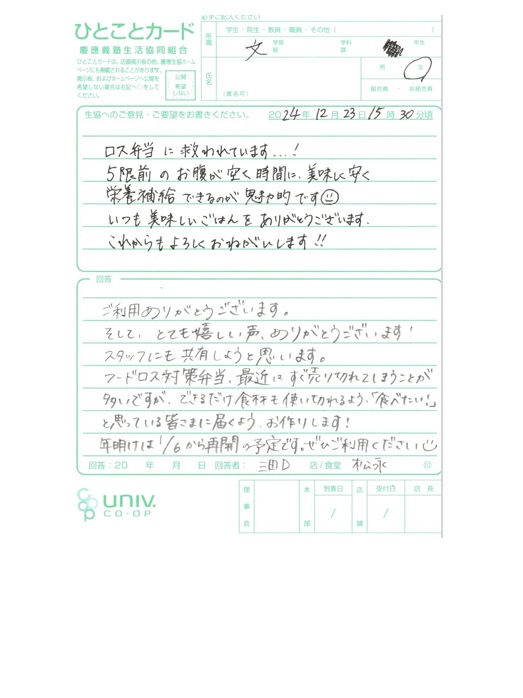 必ずご記入ください
ひとことカード
慶應義塾生活協同組合
ひとことカードは、店舗掲示板の他、生協ホーム
ページにも掲載されることがあります。
掲示板、およびホームページへ公開を
希望しない場合は右記へ○をして
ください。
公開
希望
しない
所属
学生・院生・教員・職員・その他（　　）
文
学部
部
学科
課
年生
氏名
（匿名可）
男・女
組合員・非組合員
生協へのご意見・ご要望をお書きください。 2024年12月23日15時30分頃
ロス弁当に救われています...!
5限前のお腹が空く時間に、美味しく安く
栄養補給できるのが魅力的です
いつも美味しいごはんをありがとうございます.
これからもよろしくおねがいします!!
回答
ご利用ありがとうございます。
そして、とても嬉しい声、ありがとうございます!
スタッフにも共有しようと思います。
フードロス対策弁当、最近はすぐ売り切れてしまうことが
多いですが、できるだけ食材も使い切れるよう、「食べたい!」
と思っている皆さまに届くよう、お作りします!
年明けは1/6から再開の予定です。ぜひご利用ください
回答：20　年　月　日 回答者：三田D 店/食堂 松永 ㊞
univ.
CO-OP
理事会
本部
到着日
/
店舗
受付日
/
店長